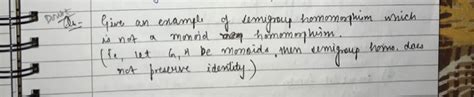 Doubt
Qu- Give an example of semigroup homomorphism which
is not a monoid homomorphism.
(i.e, let G, H be monoids, then semigroup homo. does
not preserve identity.)